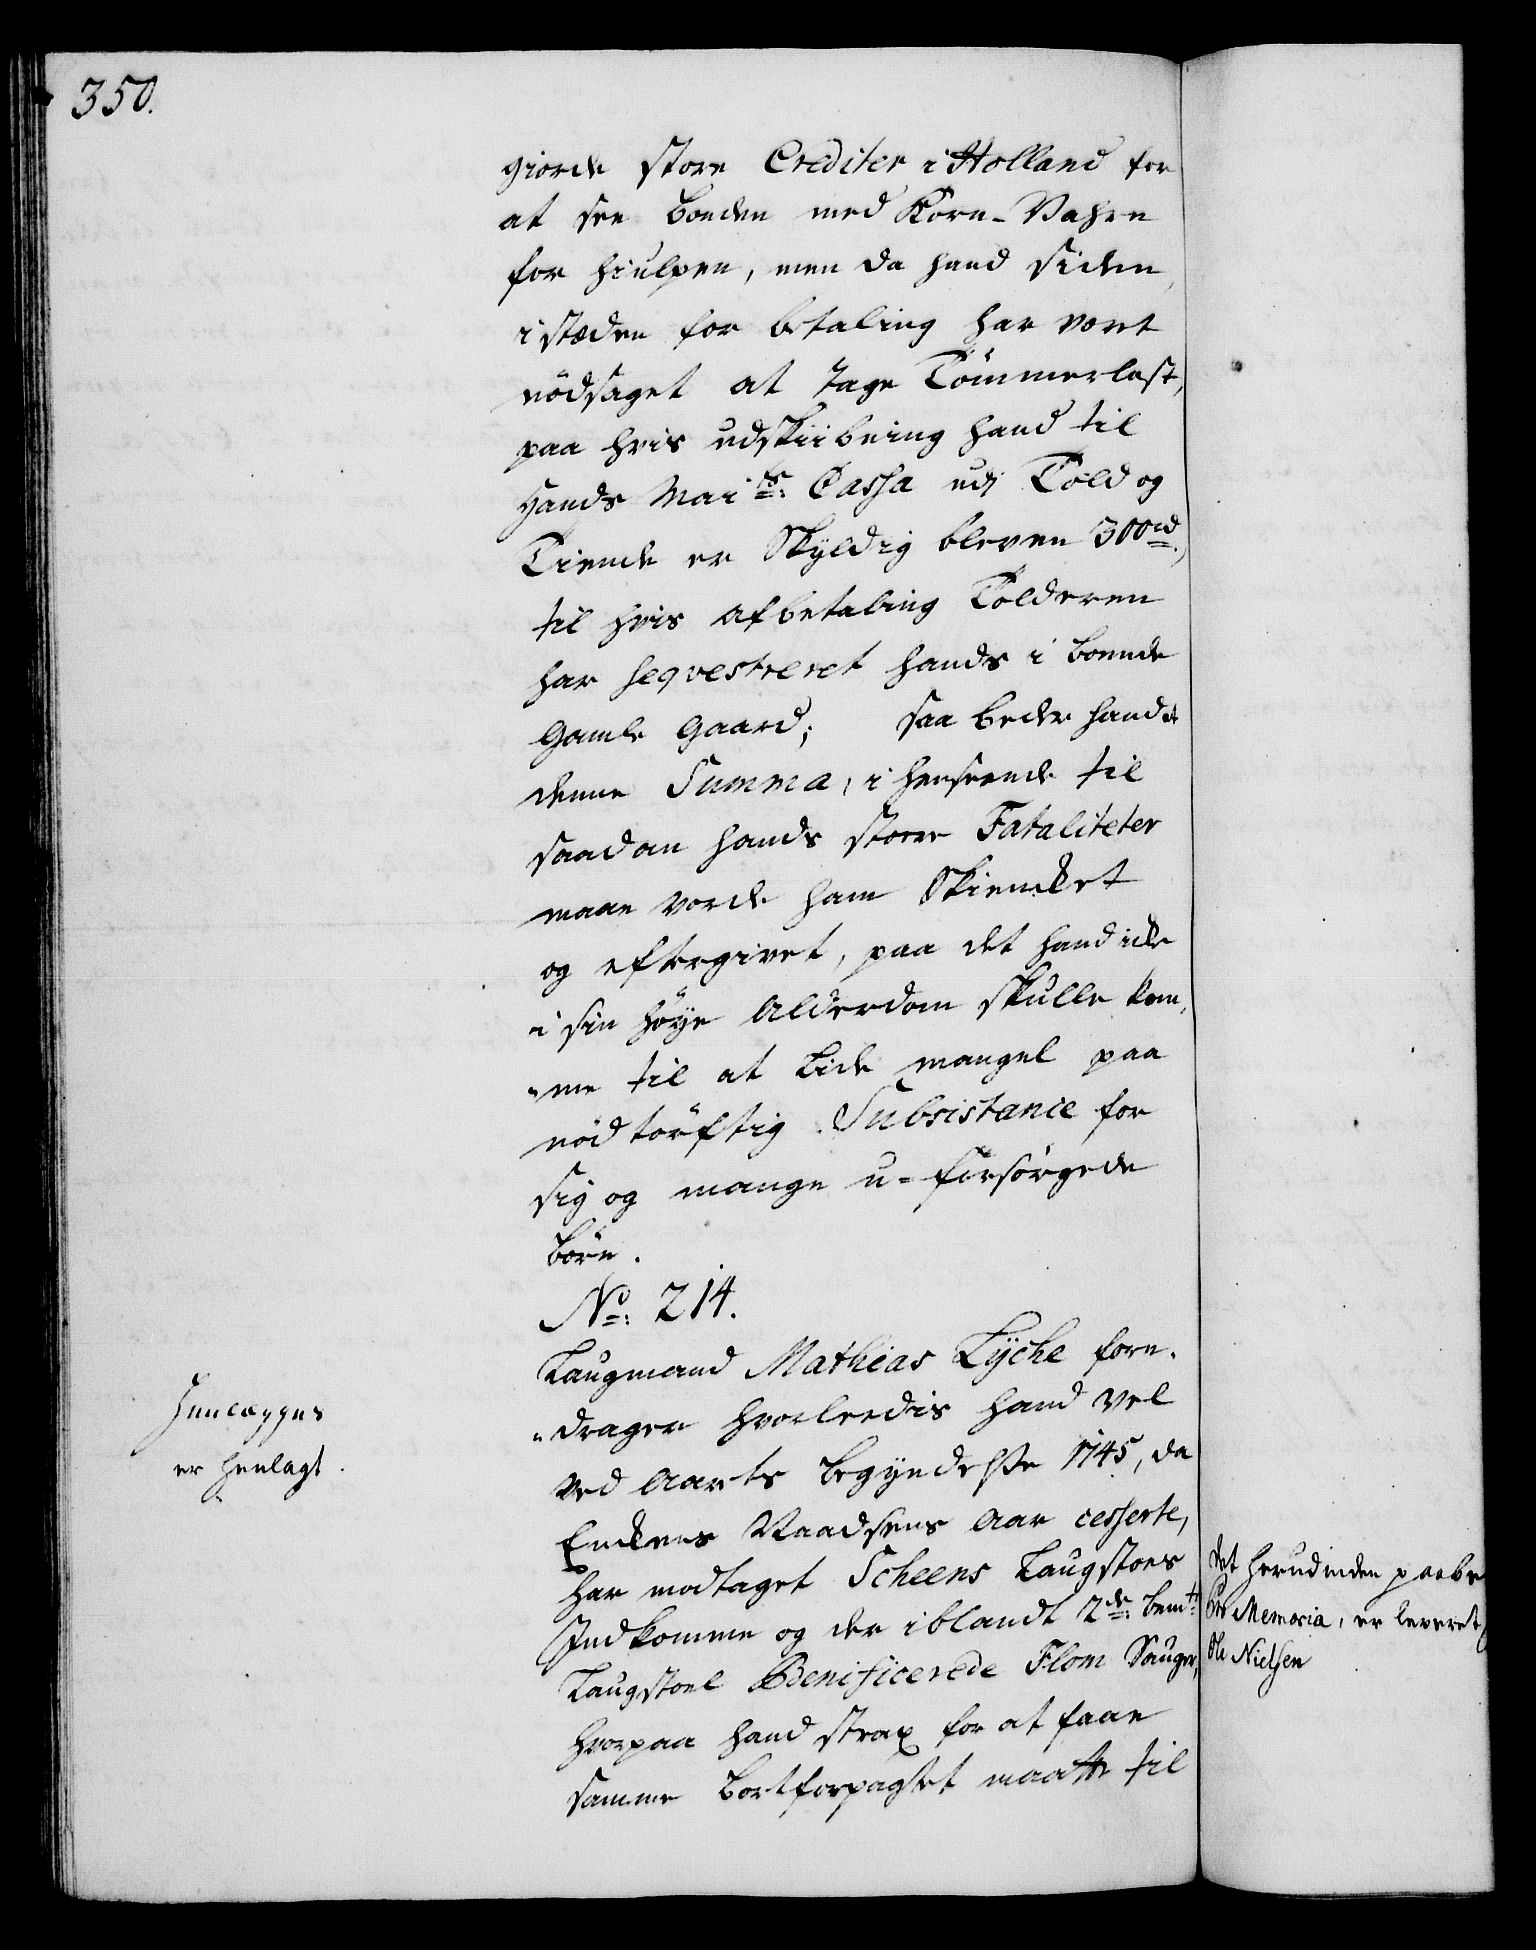 350.
giorde store Crediter i Holland for
at see bonden med Korn-Vahre
for hiulpen, men da hand siden,
i stæden for betaling har vært
nödsaget at tage Tömmerlast,
paa hvis udskiibning hand til
Hands Mai.ts: Cassa udj Told og
Tiende er Skyldig bleven 300rd.,
til hvis afbetaling Tolderen
har seqvestreret hands i boende
gamle Gaard; saa beder hand at
denne Summa, i henseende til
saadan hands store Fataliteter
maae vorde ham Skiencket
og eftergivet, paa det hand icke
i sin höye Alderdom skulle kom,
"me til at lide mangel paa
nödtörftig Subsistance for
sig og mange u-forsörgede
börn.
No: 214.
Laugmand Mathias Lÿche fore-
"drager hvorleedis hand vel
ved Aarets begyndelse 1745, da
Enckens Naadsens Aar cesserte,
har modtaget Scheens Laugstoels
Indkomme og der iblandt 2de: bemte
Laugstoel Benificerede Flom Sauger,
hvorpaa hand strax for at faae
samme bortforpagtet maatte til
Henlægges
er henlagt.
det herudinden paabe
Memoria, er leveret
Ole Nielsen